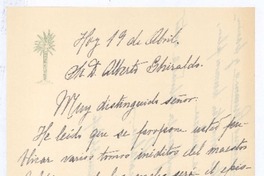 Hoy 19 de Abril.
Sr. D. Alberto Ghiraldo.
Muy distinguido señor:
He leído que se propone usted pu-
blicar varios tomos inéditos del maestro
será el epis-